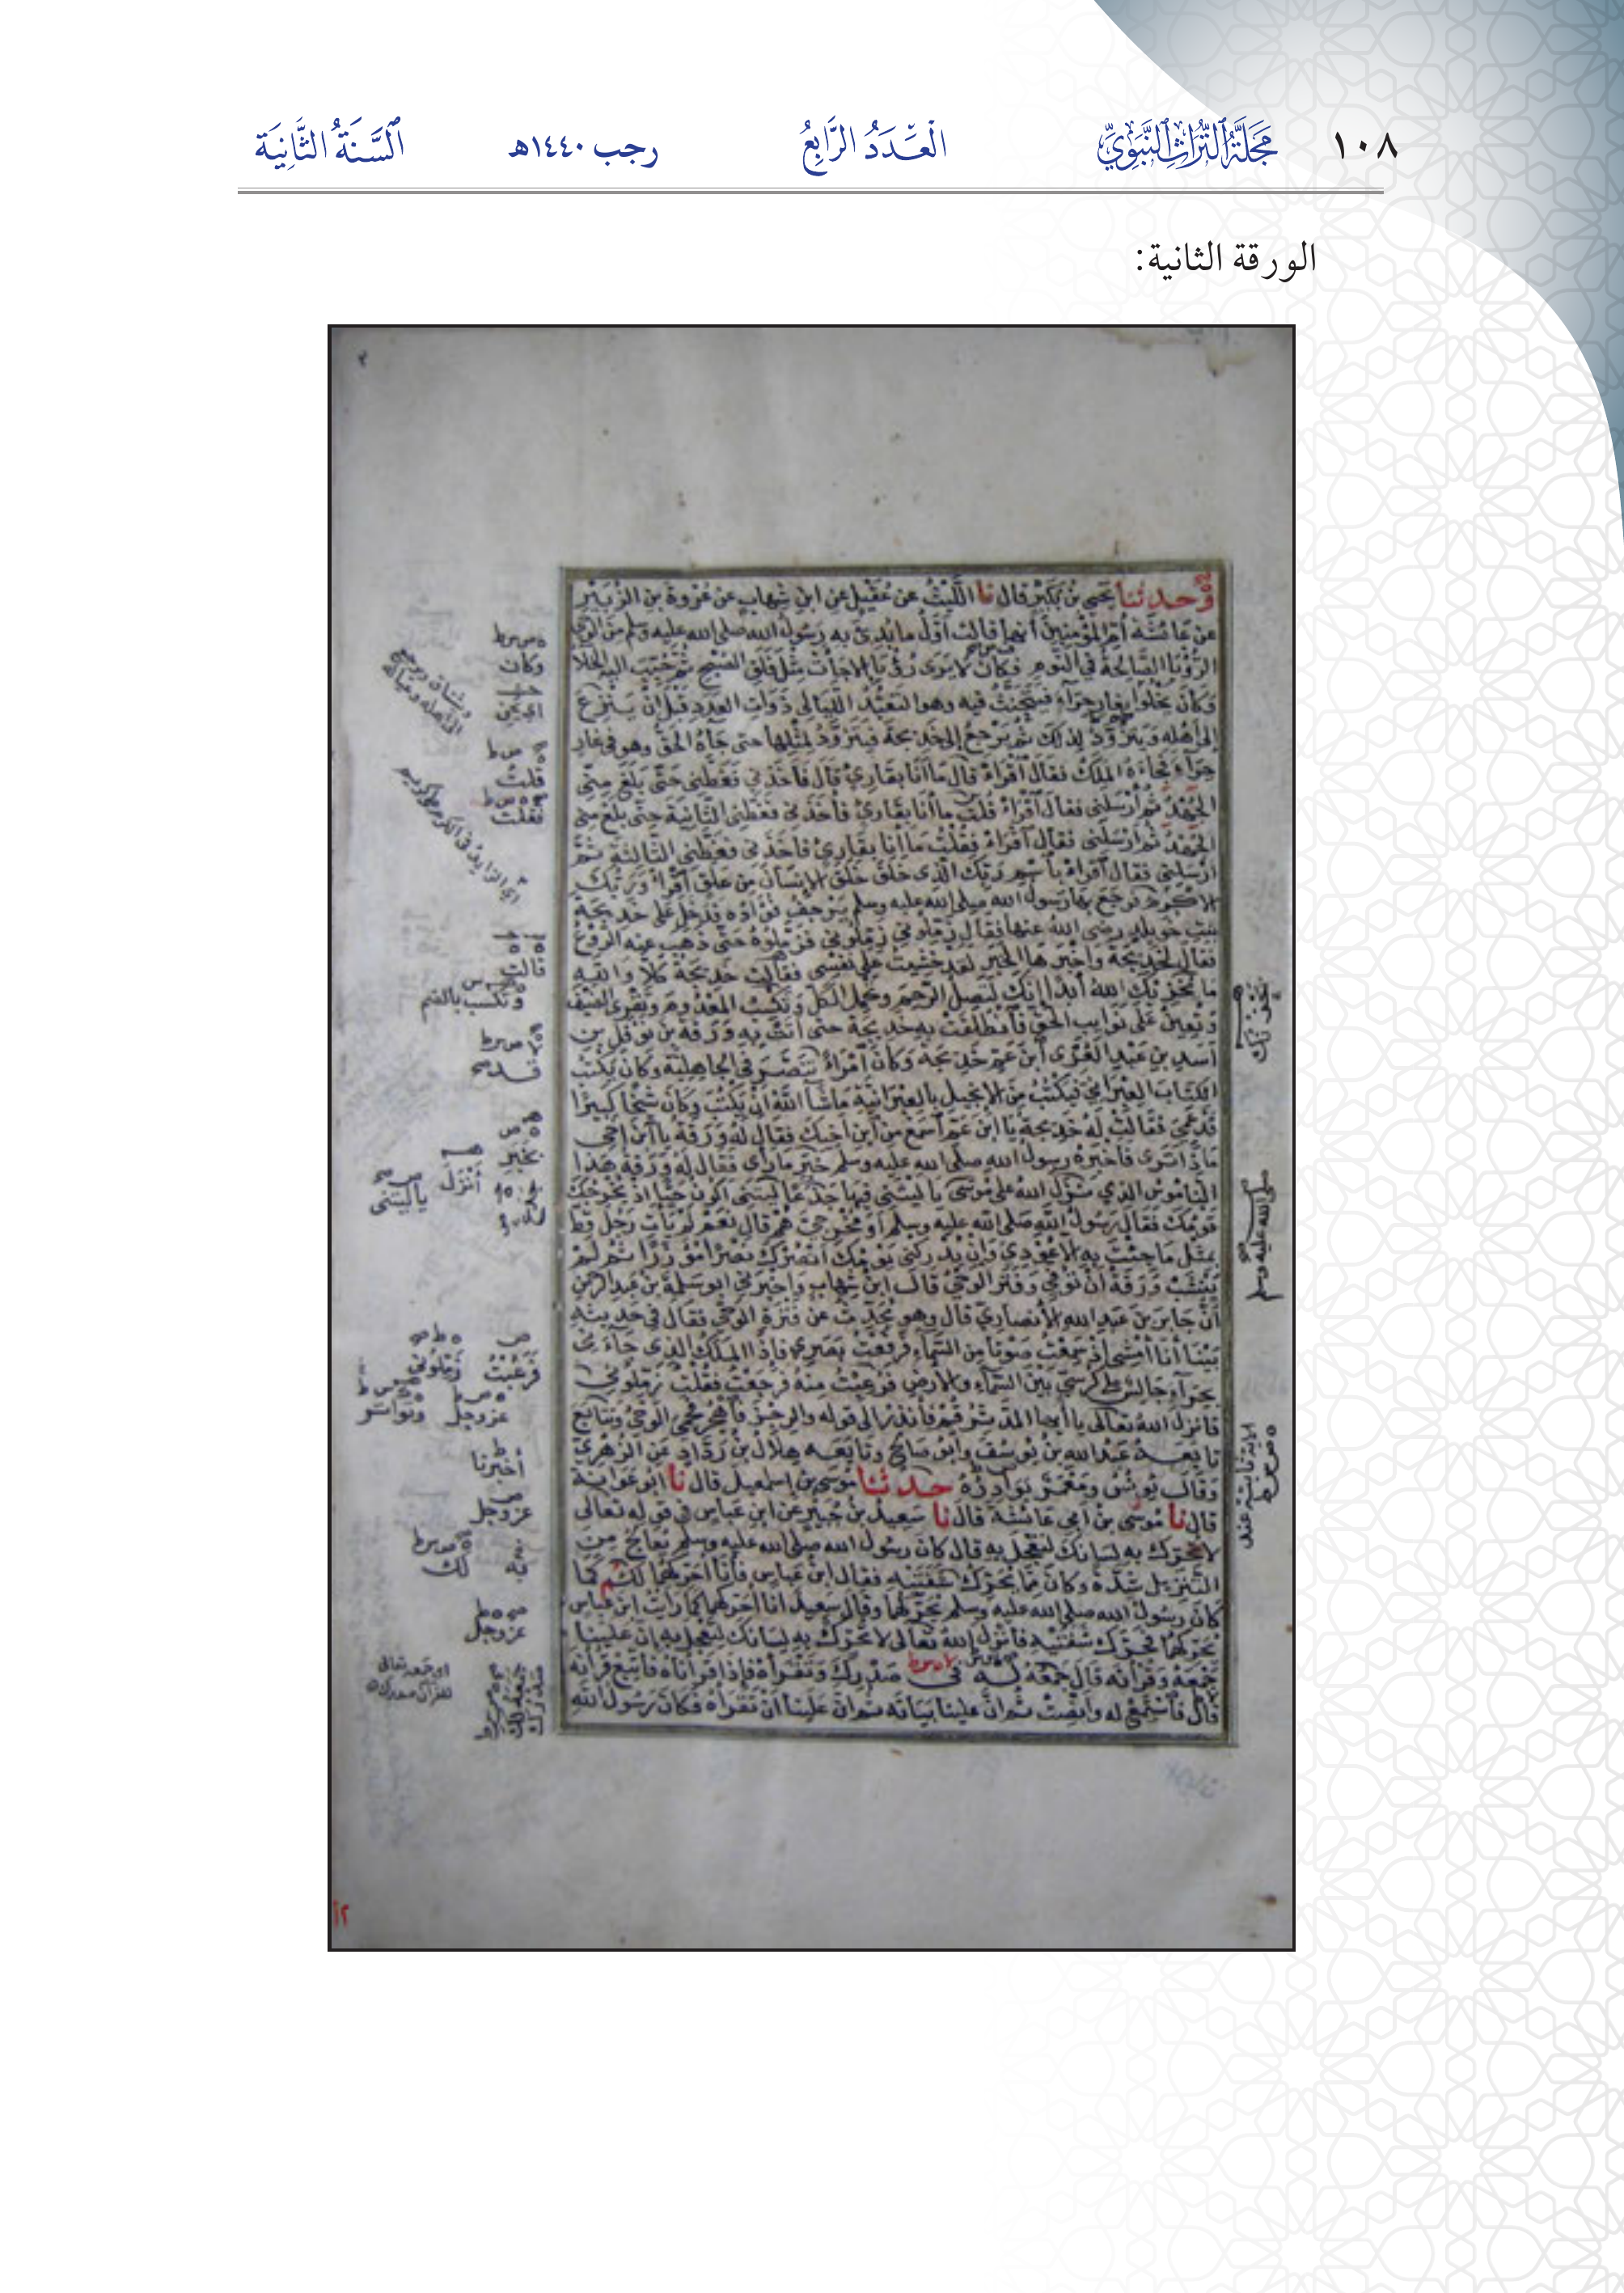 ١٠٨ مَجَلَّةُ التُّرَاثِ النَّبَوِيِّ الْعَدَدُ الرَّابِعُ رجب ١٤٤٠هـ السَّنَةُ الثَّانِيَة
الورقة الثانية:
وحدثنا يحيى بن بكير قال نا الليث عن عقيل عن ابن شهاب عن عروة بن الزبير
عن عائشة أم المؤمنين أنها قالت أول ما بدئ به رسول الله صلى الله عليه وسلم من الوحي
الرؤيا الصالحة في النوم فكان لا يرى رؤيا إلا جاءت مثل فلق الصبح ثم حبب إليه الخلا
وكان يخلوا بغار حراء فيتحنث فيه وهو التعبد الليالي ذوات العدد قبل أن ينزع
إلى أهله ويتزود لذلك ثم يرجع إلى خديجة فيتزود لمثلها حتى جاءه الحق وهو في غار
حراء فجاءه الملك فقال اقراء قال ما أنا بقارئ قال فأخذني فغطني حتى بلغ مني
الجهد ثم أرسلني فقال اقراء قلت ما أنا بقارئ فأخذني فغطني الثانية حتى بلغ مني
الجهد ثم أرسلني فقال اقراء فقلت ما أنا بقارئ فأخذني فغطني الثالثة ثم
أرسلني فقال اقراء باسم ربك الذي خلق خلق الإنسان من علق اقراء وربك
الأكرم فرجع بها رسول الله صلى الله عليه وسلم يرجف فؤاده فدخل على خديجة
بنت خويلد رضي الله عنها فقال زملوني زملوني فزملوه حتى ذهب عنه الروع
فقال لخديجة وأخبرها الخبر لقد خشيت على نفسي فقالت خديجة كلا والله
ما يخزيك الله أبدا إنك لتصل الرحم وتحمل الكل وتكسب المعدوم وتقري الضيف
وتعين على نوايب الحق فانطلقت به خديجة حتى أتت به ورقة بن نوفل بن
أسد بن عبد العزى ابن عم خديجة وكان امراء تنصر في الجاهلية وكان يكتب
الكتاب العبراني فيكتب من الإنجيل بالعبرانية ما شاء الله أن يكتب وكان شيخا كبيرا
قد عمي فقالت له خديجة يا ابن عم اسمع من ابن أخيك فقال له ورقة يا ابن أخي
ماذا ترى فأخبره رسول الله صلى الله عليه وسلم خبر ما رأى فقال له ورقة هذا
الناموس الذي نزل الله على موسى يا ليتني فيها جذعا ليتني أكون حيا إذ يخرجك
قومك فقال رسول الله صلى الله عليه وسلم أو مخرجي هم قال نعم لم يأت رجل قط
بمثل ما جئت به إلا عودي وإن يدركني يومك أنصرك نصرا مؤزرا ثم لم
ينشب ورقة أن توفي وفتر الوحي قال ابن شهاب وأخبرني أبو سلمة بن عبد الرحمن
أن جابر بن عبد الله الأنصاري قال وهو يحدث عن فترة الوحي فقال في حديثه
بينا أنا أمشي إذ سمعت صوتا من السماء فرفعت بصري فإذا الملك الذي جاءني
بحراء جالس على كرسي بين السماء والأرض فرعبت منه فرجعت فقلت زملوني
فأنزل الله تعالى يا أيها المدثر قم فأنذر إلى قوله والرجز فاهجر فحمي الوحي وتتابع
تابعه عبد الله بن يوسف وأبو صالح وتابعه هلال بن رداد عن الزهري
وقال يونس ومعمر بوادره حدثنا موسى بن إسمعيل قال نا أبو عوانة
قال نا موسى بن أبي عائشة قال نا سعيد بن جبير عن ابن عباس في قوله تعالى
لا تحرك به لسانك لتعجل به قال كان رسول الله صلى الله عليه وسلم يعالج من
التنزيل شدة وكان مما يحرك شفتيه فقال ابن عباس فأنا أحركهما لكم كما
كان رسول الله صلى الله عليه وسلم يحركهما وقال سعيد أنا أحركهما كما رأيت ابن عباس
يحركهما فحرك شفتيه فأنزل الله تعالى لا تحرك به لسانك لتعجل به إن علينا
جمعه وقرآنه قال جمعه له في صدرك وتقرأه فإذا قرأناه فاتبع قرآنه
قال فاستمع له وأنصت ثم إن علينا بيانه ثم إن علينا أن تقرأه فكان رسول الله
وكان
قلت
فقلت
قالت
وتكسب بالضم
بخبر
أنزل
يا ليتني
فرعبت
زملوني
عز وجل
وتواتر
أخبرنا
عز وجل
لك
به
عز وجل
صلى الله عليه وسلم
٢أ